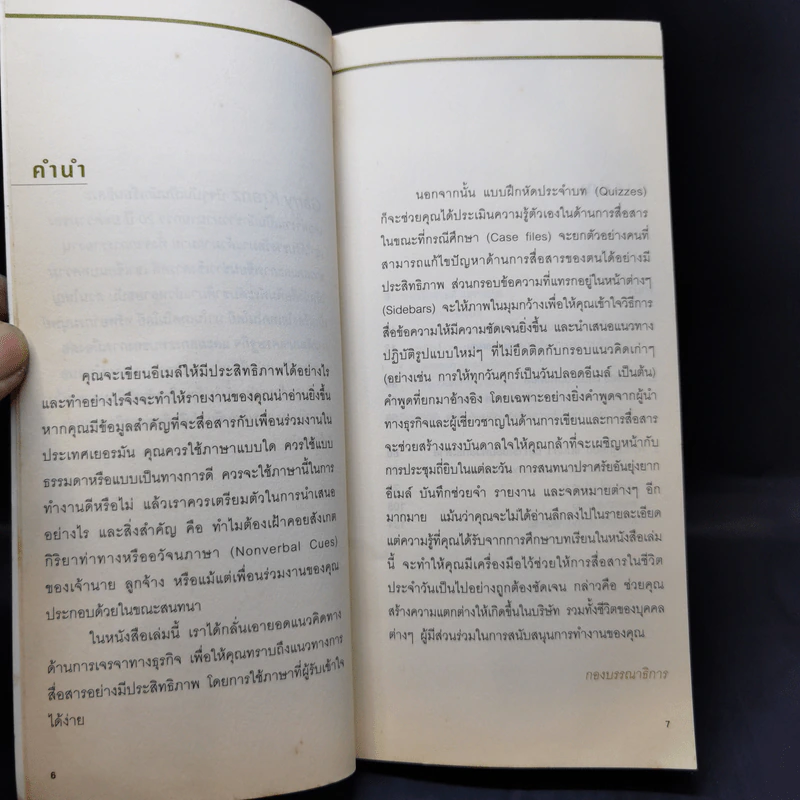 คำนำ
คุณจะเขียนอีเมล์ให้มีประสิทธิภาพได้อย่างไร
และทำอย่างไรจึงจะทำให้รายงานของคุณน่าอ่านยิ่งขึ้น
หากคุณมีข้อมูลสำคัญที่จะสื่อสารกับเพื่อนร่วมงานใน
ประเทศเยอรมัน คุณควรใช้ภาษาแบบใด ควรใช้แบบ
ธรรมดาหรือแบบเป็นทางการดี ควรจะใช้ภาษานี้ในการ
ทำงานดีหรือไม่ แล้วเราควรเตรียมตัวในการนำเสนอ
อย่างไร และสิ่งสำคัญ คือ ทำไมต้องเฝ้าคอยสังเกต
กิริยาท่าทางหรืออวัจนภาษา (Nonverbal Cues)
ของเจ้านาย ลูกจ้าง หรือแม้แต่เพื่อนร่วมงานของคุณ
ประกอบด้วยในขณะสนทนา
ในหนังสือเล่มนี้ เราได้กลั่นเอายอดแนวคิดทาง
ด้านการเจรจาทางธุรกิจ เพื่อให้คุณทราบถึงแนวทางการ
สื่อสารอย่างมีประสิทธิภาพ โดยการใช้ภาษาที่ผู้รับเข้าใจ
ได้ง่าย
6
นอกจากนั้น แบบฝึกหัดประจำบท (Quizzes)
ก็จะช่วยคุณได้ประเมินความรู้ตัวเองในด้านการสื่อสาร
ในขณะที่กรณีศึกษา (Case files) จะยกตัวอย่างคนที่
สามารถแก้ไขปัญหาด้านการสื่อสารของตนได้อย่างมี
ประสิทธิภาพ ส่วนกรอบข้อความที่แทรกอยู่ในหน้าต่างๆ
(Sidebars) จะให้ภาพในมุมกว้างเพื่อให้คุณเข้าใจวิธีการ
สื่อข้อความให้มีความชัดเจนยิ่งขึ้น และนำเสนอแนวทาง
ปฏิบัติรูปแบบใหม่ๆ ที่ไม่ยึดติดกับกรอบแนวคิดเก่าๆ
(อย่างเช่น การให้ทุกวันศุกร์เป็นวันปลอดอีเมล์ เป็นต้น)
คำพูดที่ยกมาอ้างอิง โดยเฉพาะอย่างยิ่งคำพูดจากผู้นำ
ทางธุรกิจและผู้เชี่ยวชาญในด้านการเขียนและการสื่อสาร
จะช่วยสร้างแรงบันดาลใจให้คุณกล้าที่จะเผชิญหน้ากับ
การประชุมถี่ยิบในแต่ละวัน การสนทนาปราศรัยอันยุ่งยาก
อีเมล์ บันทึกช่วยจำ รายงาน และจดหมายต่างๆ อีก
มากมาย แม้นว่าคุณจะไม่ได้อ่านลึกลงไปในรายละเอียด
แต่ความรู้ที่คุณได้รับจากการศึกษาบทเรียนในหนังสือเล่ม
นี้ จะทำให้คุณมีเครื่องมือไว้ช่วยให้การสื่อสารในชีวิต
ประจำวันเป็นไปอย่างถูกต้องชัดเจน กล่าวคือ ช่วยคุณ
สร้างความแตกต่างให้เกิดขึ้นในบริษัท รวมทั้งชีวิตของบุคคล
ต่างๆ ผู้มีส่วนร่วมในการสนับสนุนการทำงานของคุณ
กองบรรณาธิการ
7